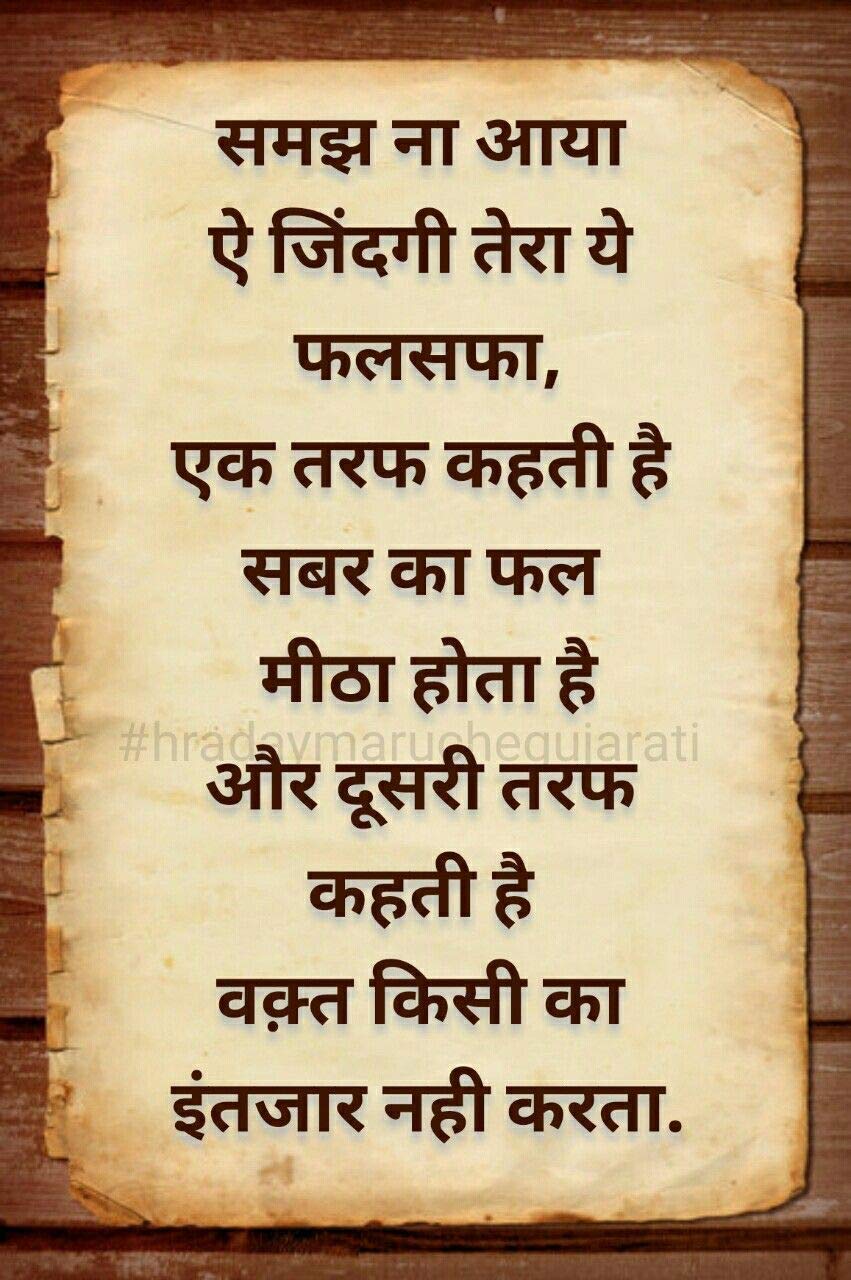 समझ ना आया
ऐ जिंदगी तेरा ये
फलसफा,
एक तरफ कहती है
सबर का फल
मीठा होता है
#hradaymaruchegujarati
और दूसरी तरफ
कहती है
वक़्त किसी का
इंतजार नही करता.